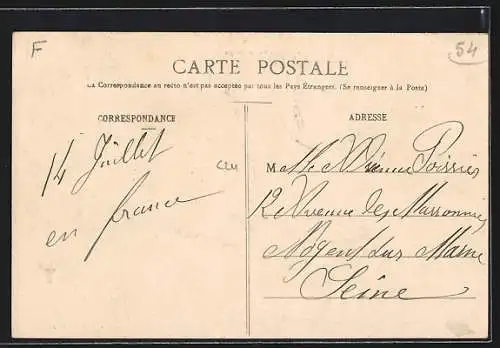 F
54
CARTE POSTALE
La Correspondance au recto n'est pas acceptée par tous les Pays Étrangers. (Se renseigner à la Poste)
CORRESPONDANCE
ADRESSE
14 Juillet
en france
M
12 Avenue des Marronniers
Nogent sur Marne
Seine